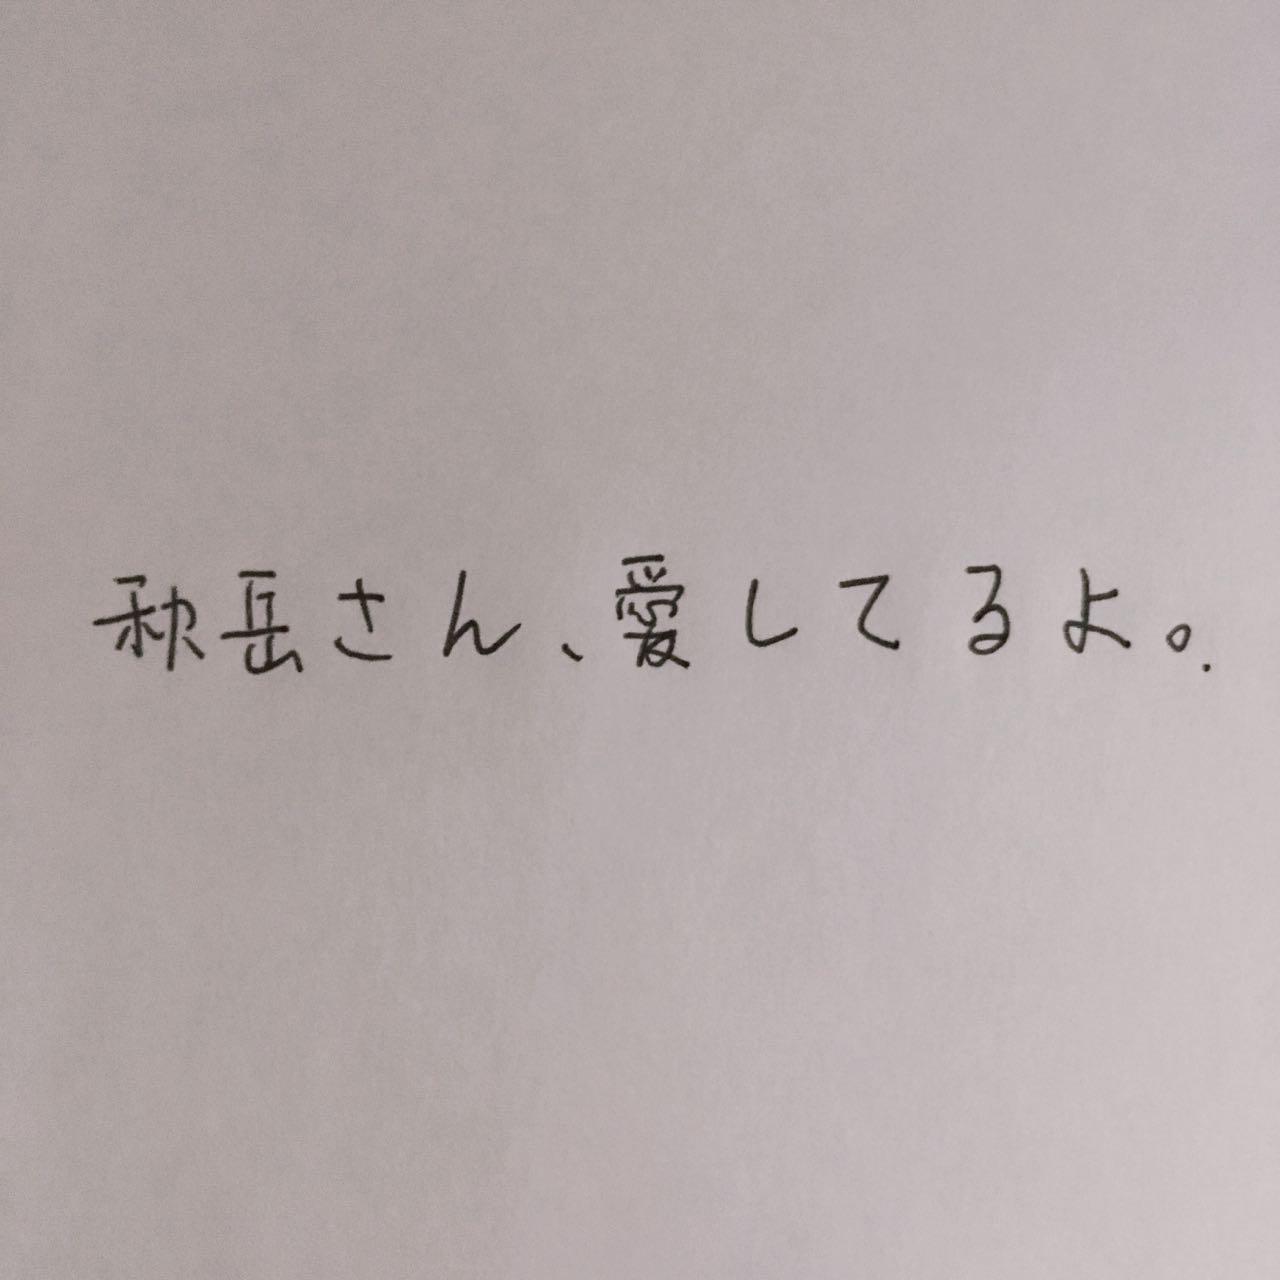 秋岳さん、愛してるよ。.